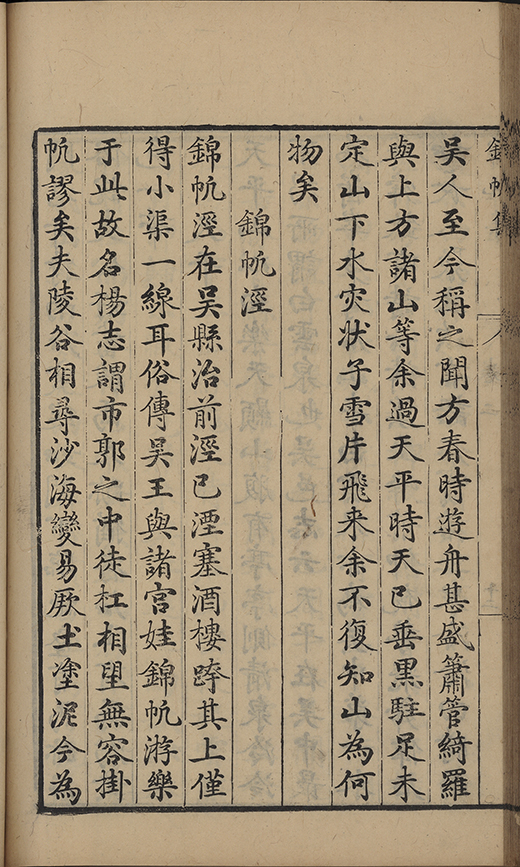 錦帆集
吳人至今稱之聞方春時遊舟甚盛簫管綺羅
與上方諸山等余過天平時天已垂黑駐足未
定山下水灾狀子雪片飛来余不復知山為何
物矣
錦帆涇
錦帆涇在吳縣治前涇已湮塞酒樓跨其上僅
得小渠一線耳俗傳吳王與諸宮娃錦帆游樂
于此故名楊志謂市郭之中徒杠相望無容掛
帆謬矣夫陵谷相尋沙海變易厥土塗泥今為